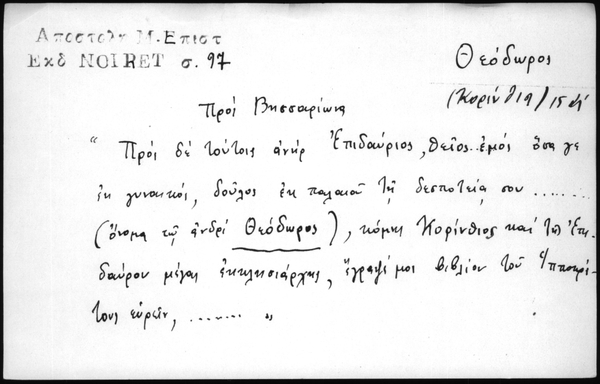 Αποστολη Μ. Επιστ
Εκδ NOIRET σ. 97
Θεόδωρος
(Κορίνθια) 15 αἰ
Πρὸς Βησσαρίωνα
" Πρὸς δὲ τούτοις ἀνὴρ Ἐπιδαύριος, θεῖος.. ἐμὸς ὅσα γε
ἐκ γυναικὸς, δοῦλος ἐκ παλαιοῦ τῇ δεσποτείᾳ σου ......
(ὄνομα τῷ ἀνδρὶ Θεόδωρος), κόμης Κορίνθιος καὶ τῶν Ἐπι
δαύρου μέγας ἐκκλησιάρχης, ἔγραψέ μοι βιβλίον τοῦ Ἱπποκρά
τους εὑρεῖν, ....... "